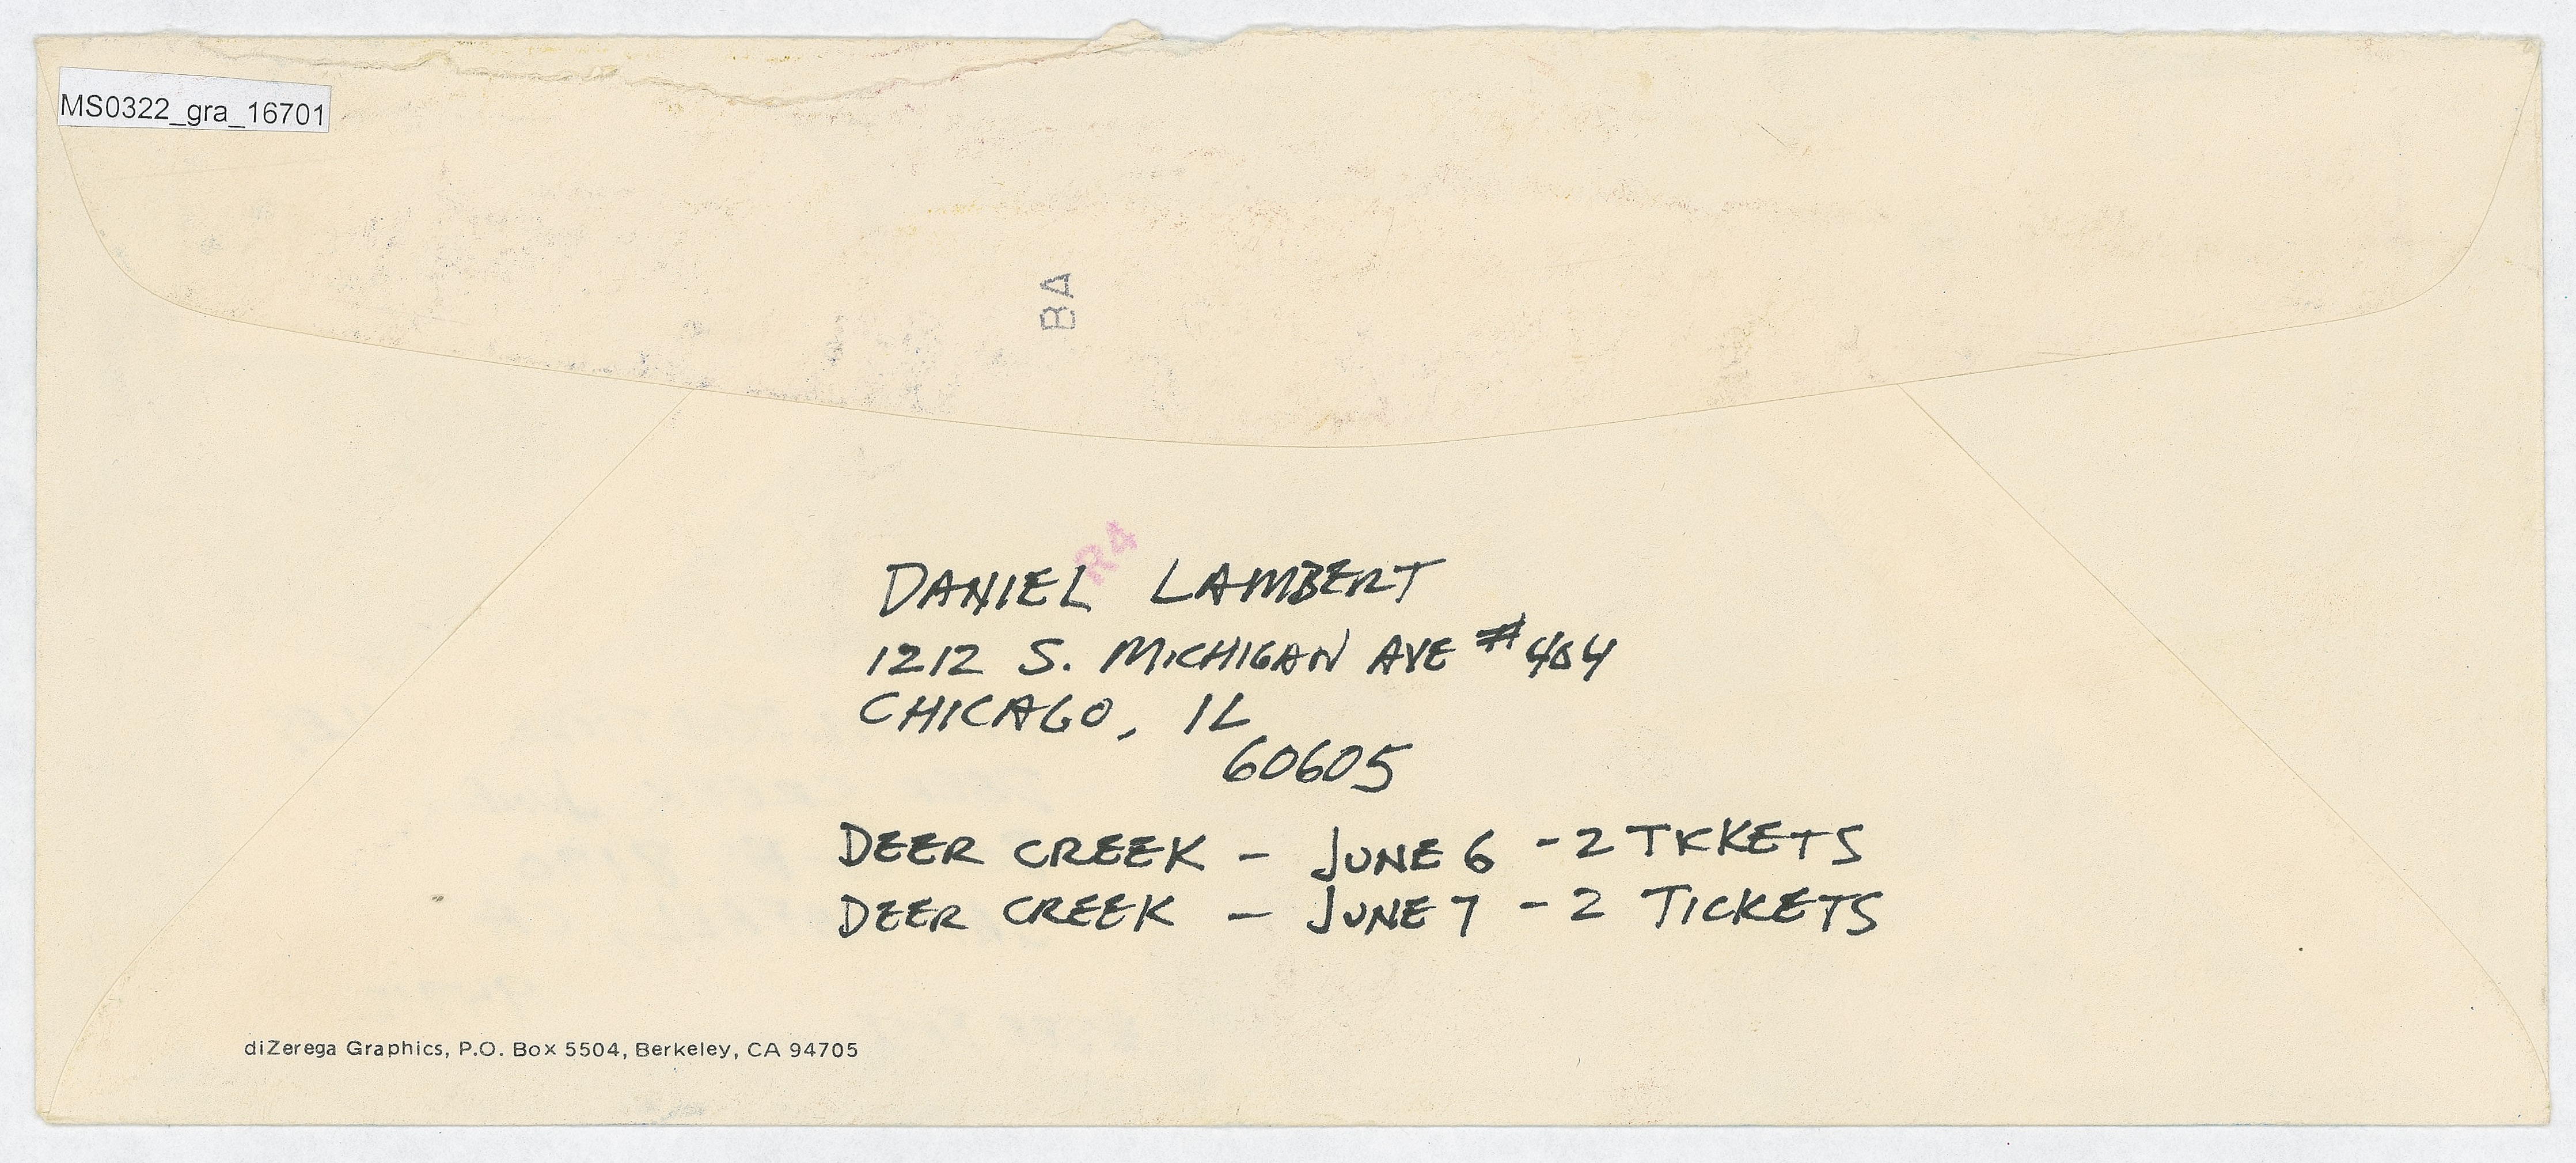 MS0322_gra_16701
BA
R4
DANIEL LAMBERT
1212 S. MICHIGAN AVE #404
CHICAGO, IL
60605
DEER CREEK - JUNE 6 - 2 TICKETS
DEER CREEK - JUNE 7 - 2 TICKETS
diZerega Graphics, P.O. Box 5504, Berkeley, CA 94705